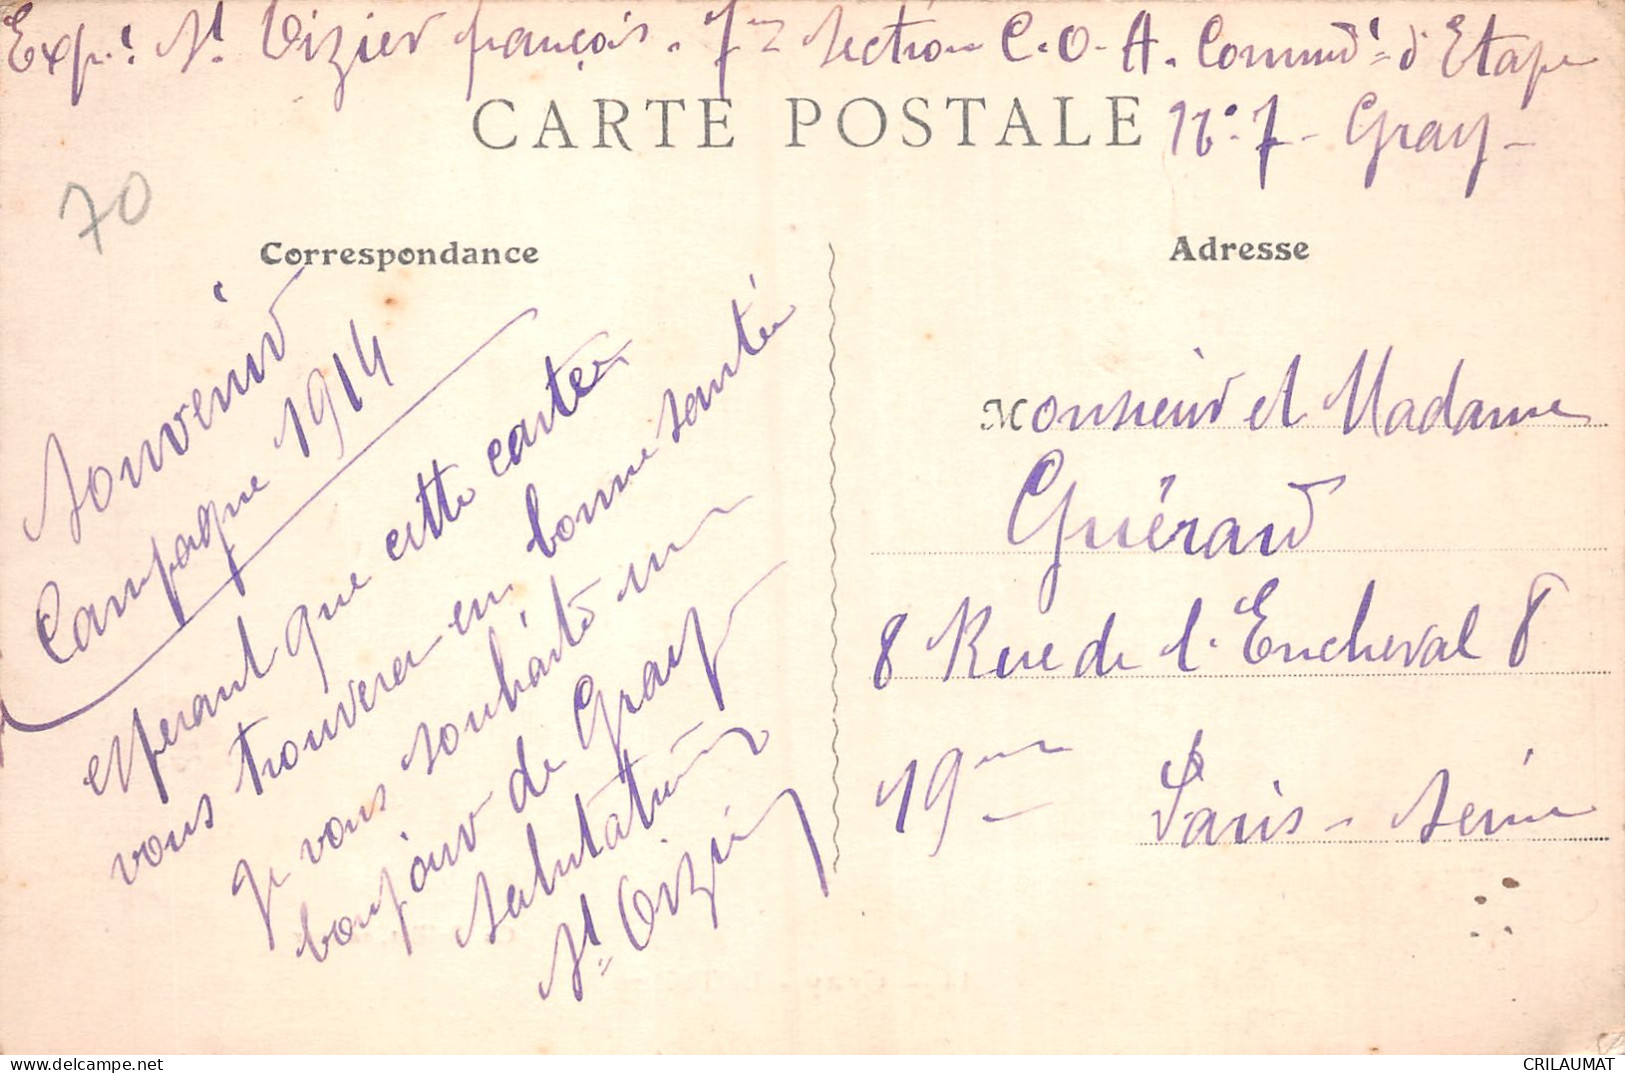 Expr! St Vizier françois. 7me section C.O.A. Commnd!= d'Etape
CARTE POSTALE
N°. 7 - Gray -
70
Correspondance
Souvenir
Campagne 1914
esperant que cette carte
vous trouvera en bonne santé
je vous souhaite un
bonjour de Gray
Salutation
St Vizier
Adresse
Monsieur et Madame
Guérard
8 Rue de l'Encheval 8
19me Paris - Seine
www.delcampe.net
CRILAUMAT